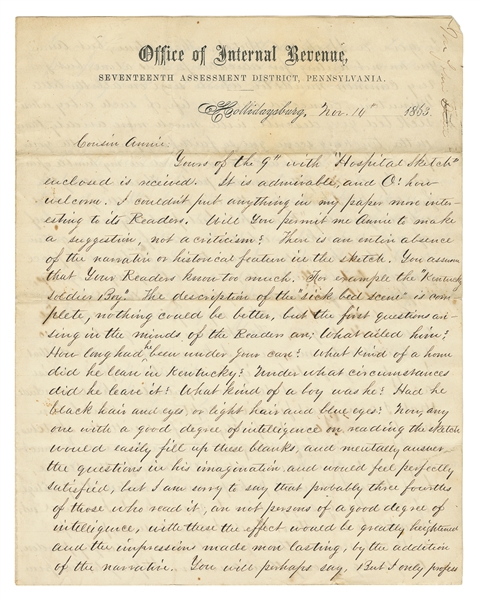 Office of Internal Revenue,
SEVENTEENTH ASSESSMENT DISTRICT, PENNSYLVANIA.
Hollidaysburg, Nov. 10" 1863
Cousin Annie.
Yours of the 9" with "Hospital Sketch"
enclosed is received. It is admirable, and O! how
welcome. I couldn't put anything in my paper more inter-
esting to its Readers. Will You permit me Annie to make
a suggestion, not a criticism? There is an entire absence
of the narrative or historical feature in the sketch. You assume
that Your Readers know too much. For example the "Kentucky
soldier Boy." The description of the "sick bed scene" is com-
plete, nothing could be better, but the first questions ari-
sing in the minds of the Readers are; What ailed him?
How long had he been under your care? What kind of a home
did he leave in Kentucky? Under what circumstances
did he leave it? What kind of a boy was he? Had he
black hair and eyes, or light hair and blue eyes? Now, any
one with a good degree of intelligence on reading the sketch
would easily fill up these blanks, and mentally answer
the questions in his imagination and would feel perfectly
satisfied, but I am sorry to say that probably three fourths
of those who read it, are not persons of a good degree of
intelligence, with these the effect would be greatly heightened
and the impressions made more lasting, by the addition
of the narrative. You will perhaps say, But I only profess